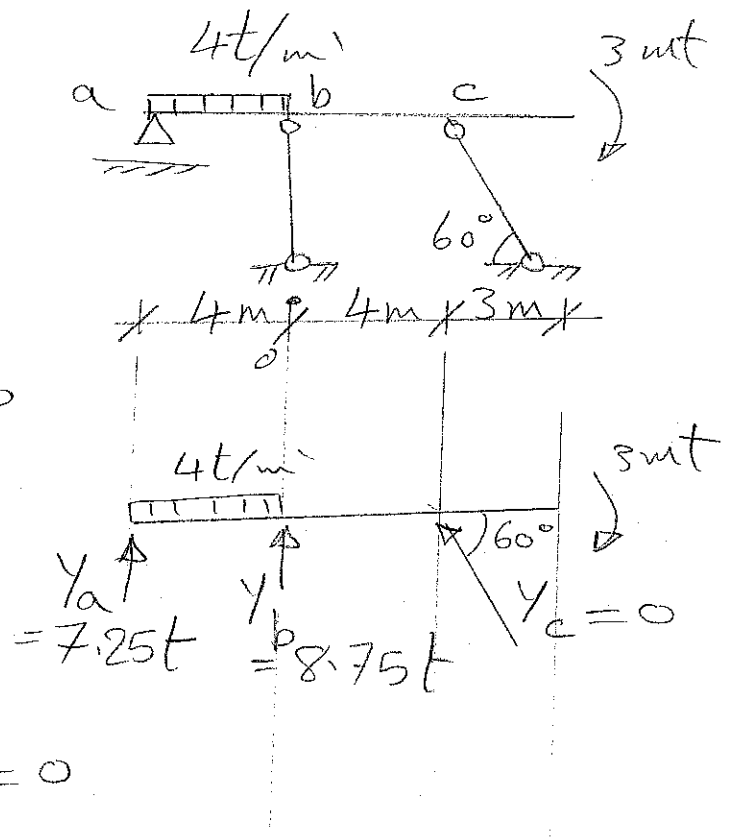 4t/m`
3 mt
a b c
60°
4m 4m 3m
o
4t/m`
3mt
60°
Ya
= 7.25t
Yb
= 8.75t
Yc = 0
= 0